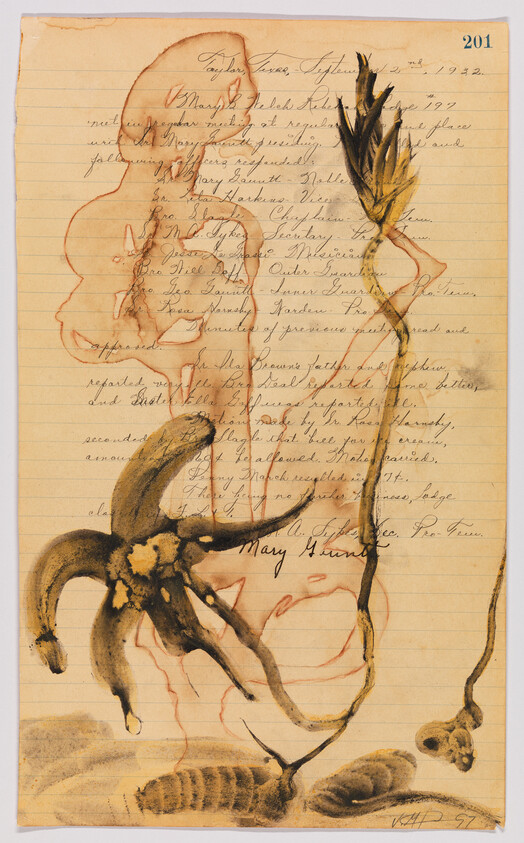 201
Taylor, Texas, September 2nd, 1922.
Mary B Welch Rebekah Lodge #197
met in regular meeting at regular and place
with Sr. Mary Gauntt presiding. and
following officers responded:
Mary Gauntt - Noble
Sr. Lita Harkins - Vice
Bro. Slagle - Chaplain - Tem.
Sr. M. A. Sykes - Secretary - Pro Tem.
Jesse La Grassi - Musician
Bro Will Goff - Outer Guardian
Bro Geo Gauntt - Inner Guardian - Pro. Tem.
Rosa Hornsby - Warden - Pro
Minutes of previous meeting read and
approved.
Sr. Ida Brown's father and nephew
reported very ill. Bro Neal reported some better,
and Sister Ella reported ill.
Motion made by Sr Rosa Hornsby,
seconded by Bro Slagle that bill for ice cream,
amount be allowed. Motion carried.
Penny March resulted in 74.
There being no further business, lodge
closed F. L. T.
M. A. Sykes, Sec. Pro-Tem.
Mary Gauntt
97